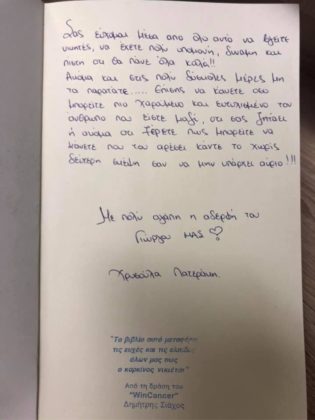 Σας εύχομαι μέσα απο όλο αυτό να βγείτε
νικητές, να έχετε πολύ υπομονή, δύναμη και
πίστη οτι θα πάνε όλα καλά!!
Ακόμα και στις πολύ δύσκολες μέρες μη
τα παρατάτε..... Επίσης να κάνετε όσο
μπορείτε πιο χαρούμενο και ευτυχισμένο τον
άνθρωπο που είστε μαζί, ότι σας ζητάει
ή ακόμα οτι ξέρετε πως μπορείτε να
κάνετε που του αρέσει κάντε το χωρίς
δεύτερη σκέψη σαν να μην υπάρχει αύριο!!!
Με πολύ αγάπη η αδερφή του
Γιώργου ΜΑΣ
Χρυσούλα Πατεράκη
"Το βιβλίο αυτό μεταφέρει
τις ευχές και τις ελπίδες
όλων μας πως
ο καρκίνος νικιέται"
Από τη δράση του
"WinCancer"
Δημήτρης Σιάχος